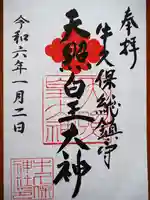 奉拝
牛久保総鎮守
天照白王大神
令和六年一月二日